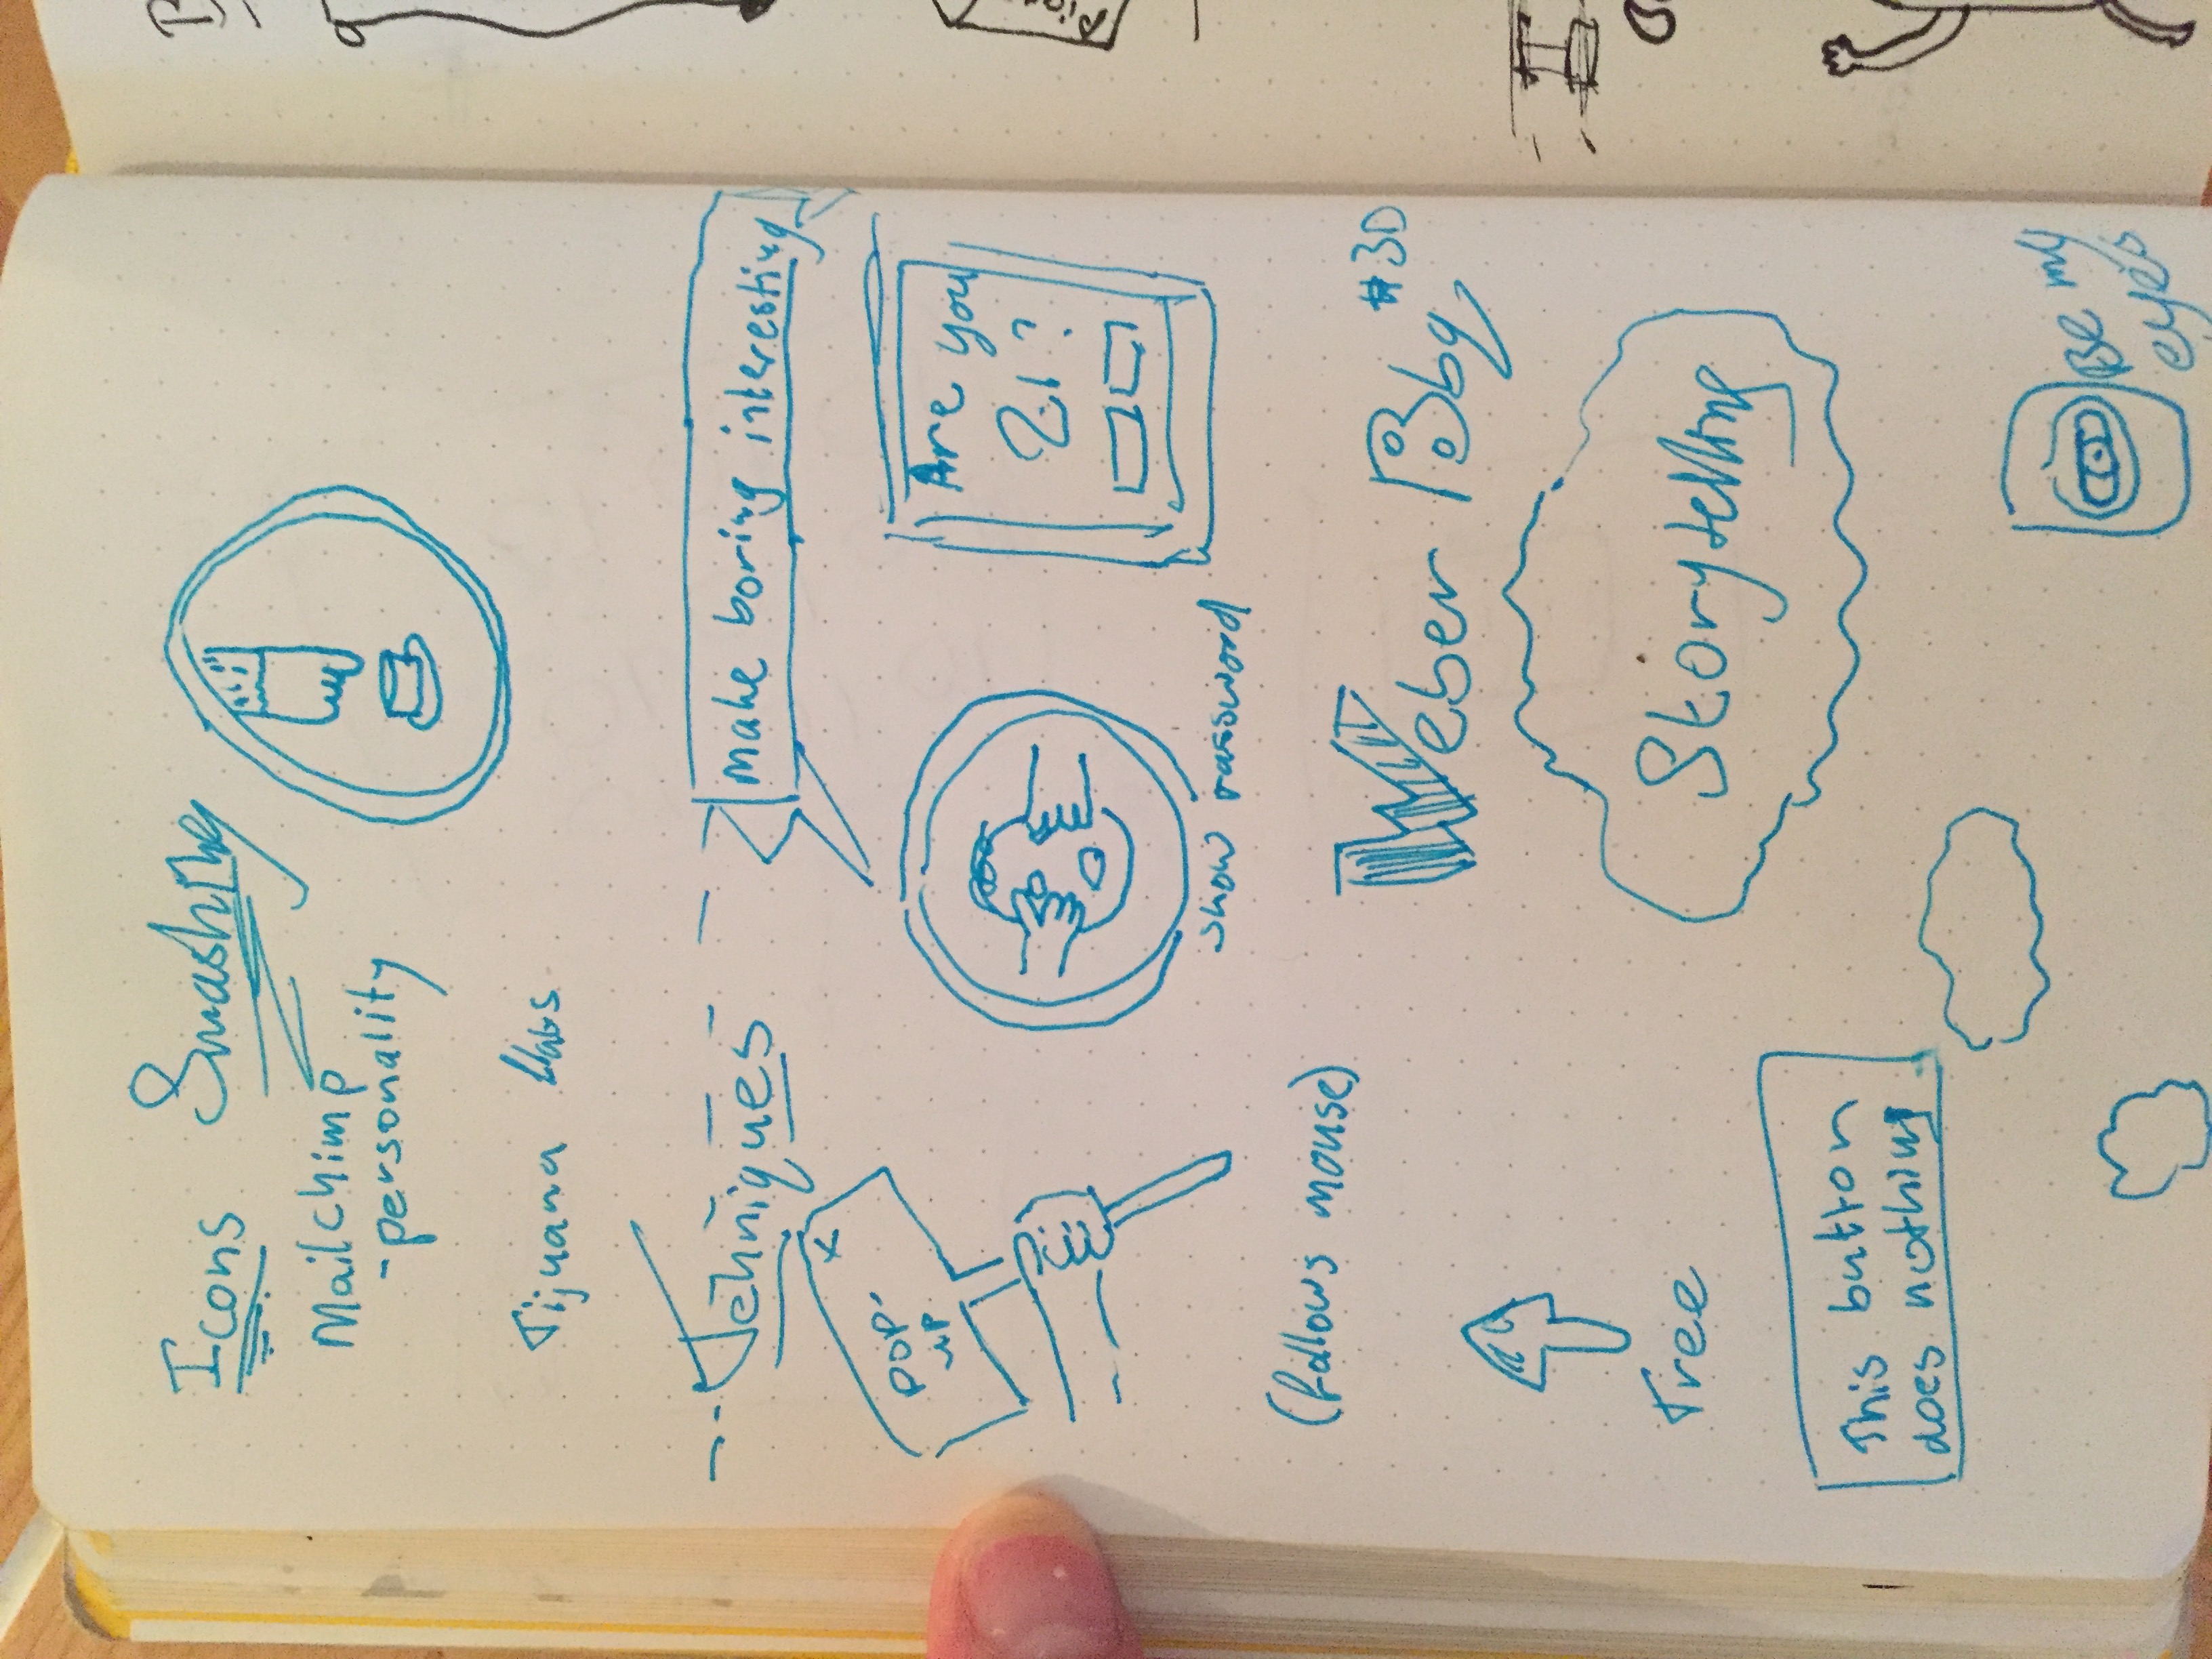 Icons Smashing
Mailchimp
-personality
Tijuana
Tehniques
make boring interesting
POP-
UP
x
Are you
21?
show password
(follows mouse)
Weber Bbq #3D
Tree
Storytelling
This button
does nothing
Be my
eyes